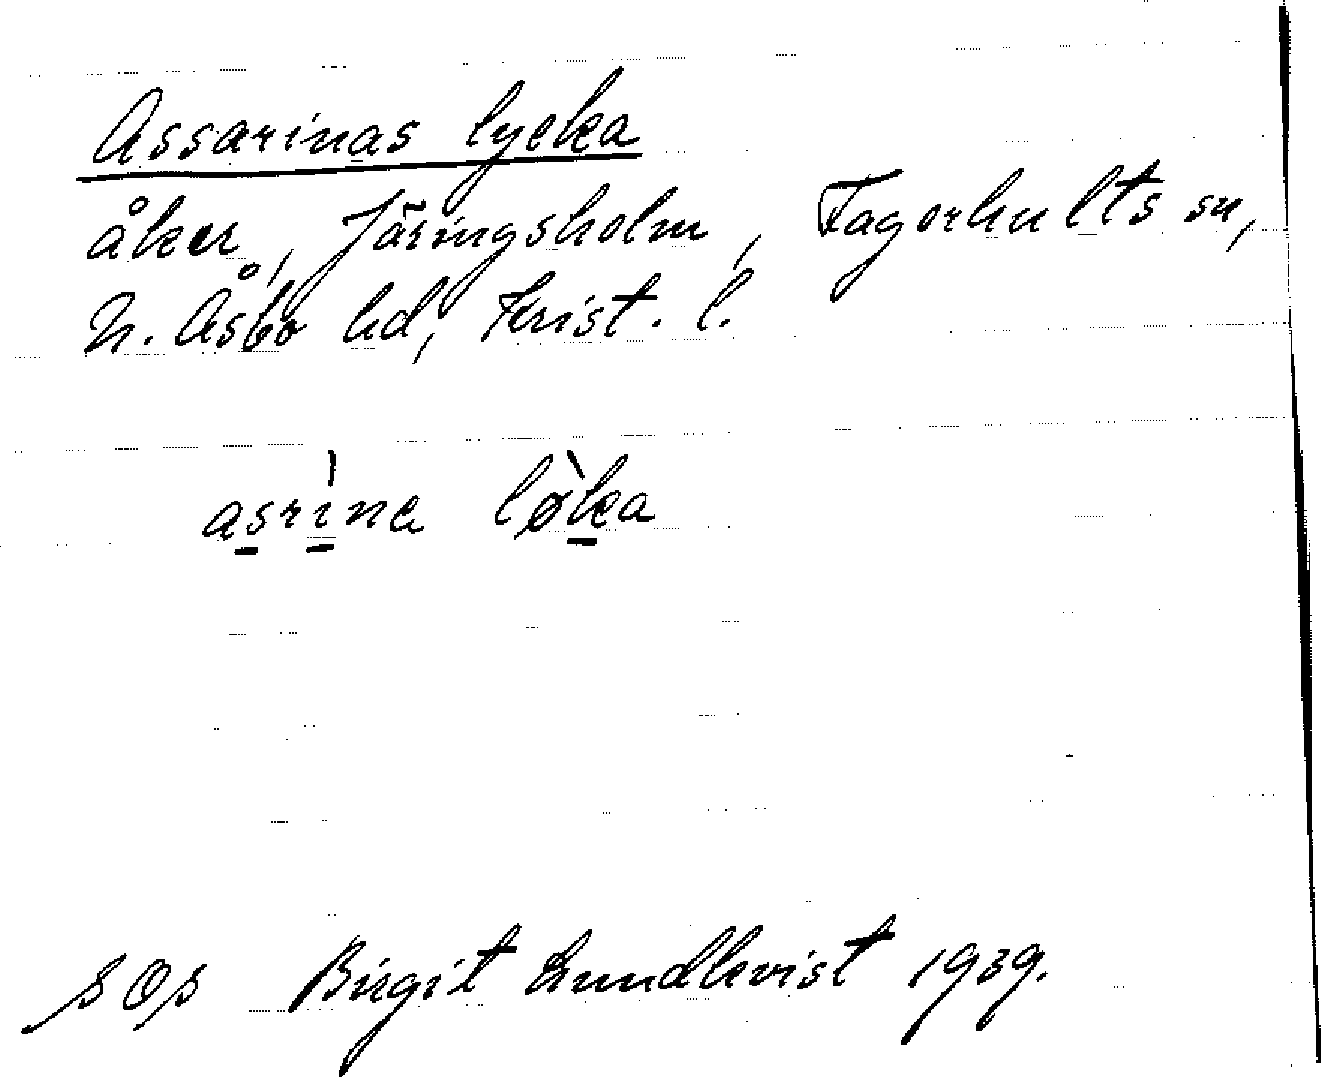 Assarinas lycka
åker, Järingsholm, Fagerhults sn,
N. Åsbo hd, Krist. l.
asrìna lø̀ka
SOS Birgit Lundkvist 1939.